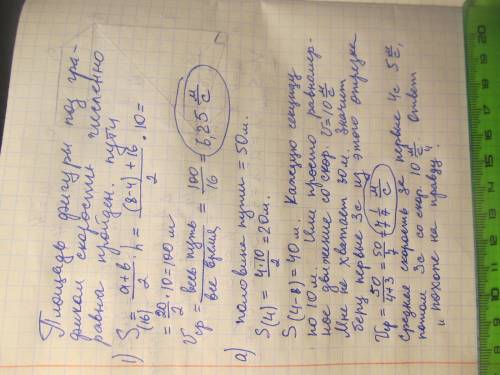 Площадь фигуры под гра-
фиком скорости численно
равна пройден. пути
1) S(16) = a+b/2 · h = (8-4)+16/2 · 10 =
= 20/2 · 10 = 100 м
Vср = весь путь/все время = 100/16 = 6,25 м/с
а) половина пути = 50м.
S(4) = 4·10/2 = 20м.
S(4-8) = 40 м. Каждую секунду
по 10 м. Или просто равномер-
ное движение со скор. V=10 м/с
Мне не хватает 30м, значит
беру первые 3с из этого отрезка
Vср = 50/4+3 = 50/7 = 7 1/7 м/с
Средняя скорость за первые 4с 5 м/с,
потом 3с со скор. 10 м/с, ответ
"похоже на правду."
20
19
18
17
16
15
14
13